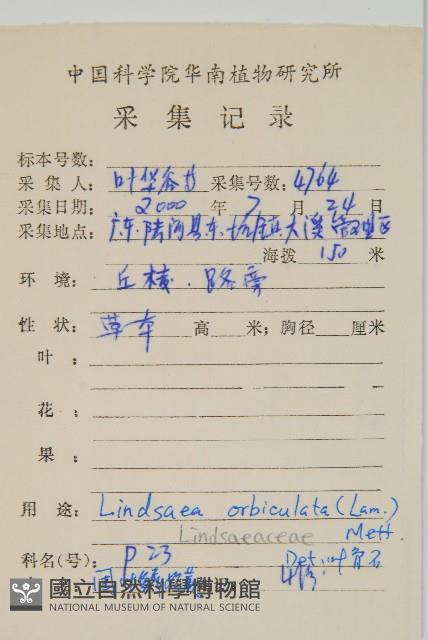 中国科学院华南植物研究所
采集记录
标本号数:
采集人: 叶华谷 采集号数: 4764
采集日期: 2000 年 7 月 24 日
采集地点: 广东.陆河县.东坑镇.大溪
海拨 150 米
环境: 丘陵.路旁
性状: 草本 高 米; 胸径 厘米
叶:
花:
果:
用途: Lindsaea orbiculata (Lam.)
Lindsaeaceae Mett.
科名(号): P23 Det. 叶
國立自然科學博物館
NATIONAL MUSEUM OF NATURAL SCIENCE